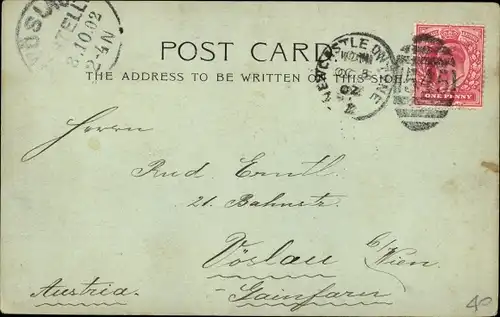 VÖSLAU
8.10.02
2-4N
POST CARD
THE ADDRESS TO BE WRITTEN ON THIS SIDE.
NEWCASTLE ON TYNE
OC 8
02
ONE PENNY
Herrn
Rud Ernst.
21. Bahnstr.
Vöslau b/Wien.
Gainfarn
Austria.
40